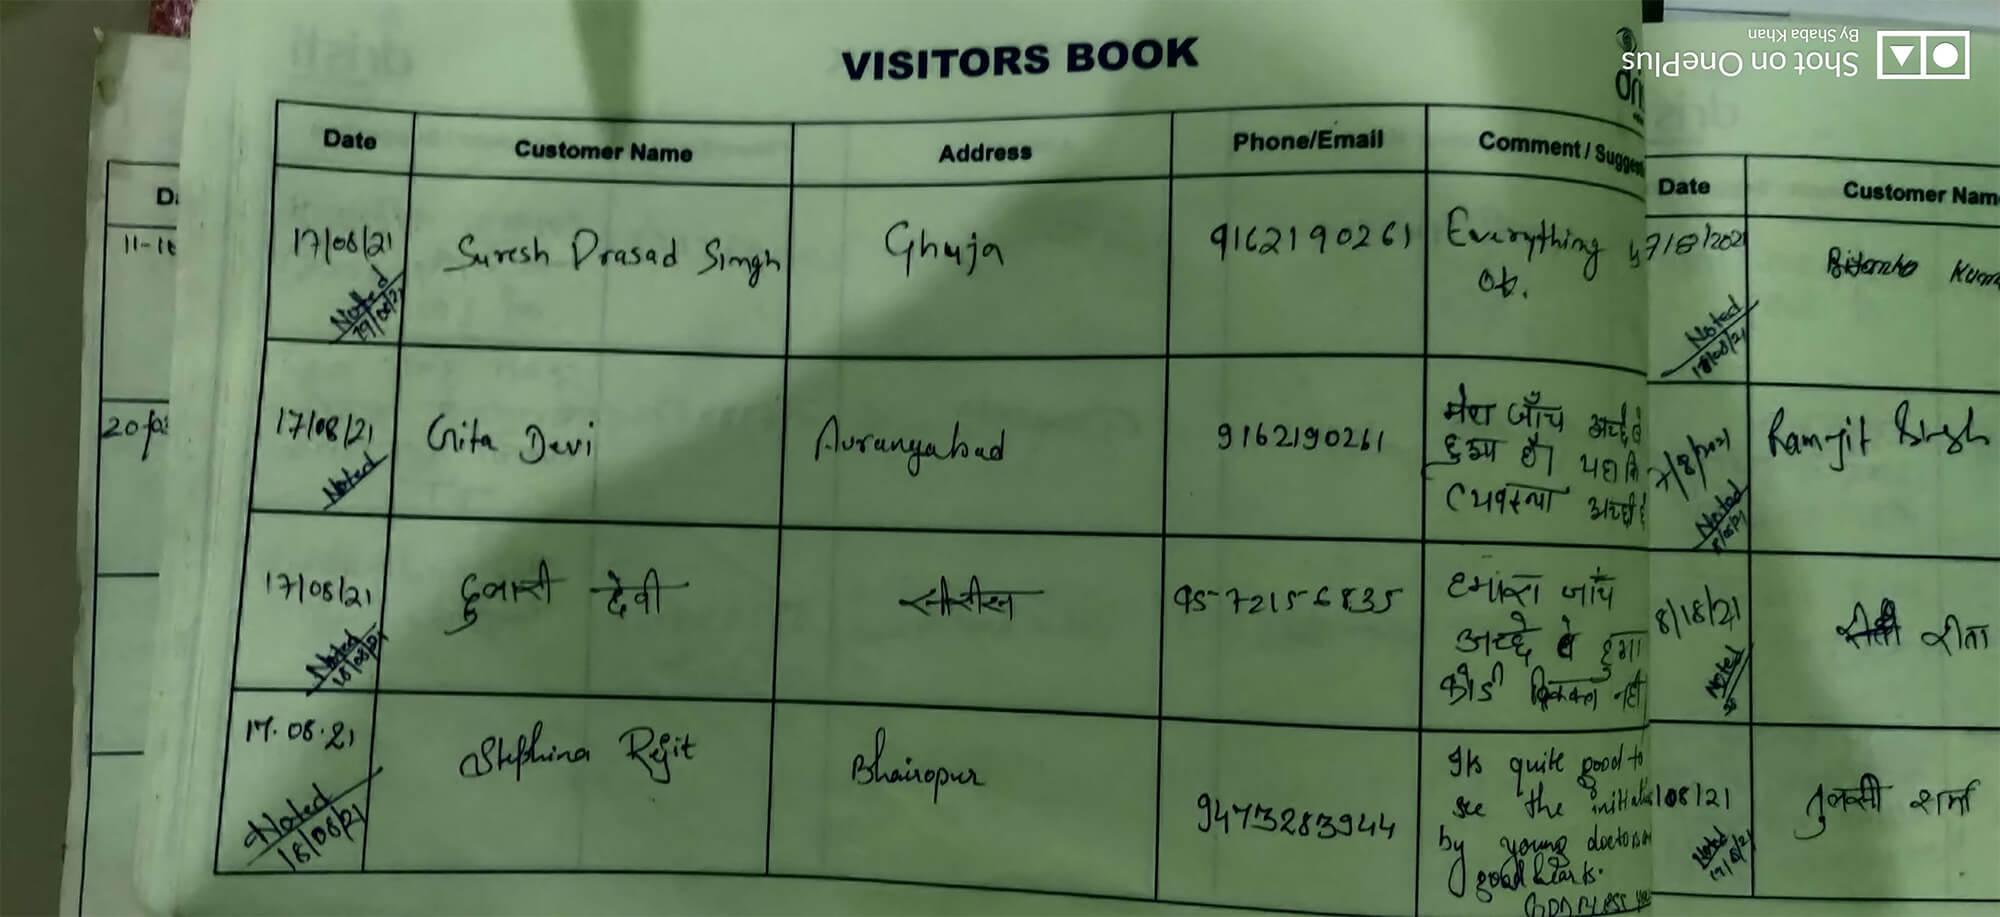 VISITORS BOOK
Shot on OnePlus
By Shaba Khan
Date Customer Name Address Phone/Email Comment / Sugges
17/08/21 Suresh Prasad Singh Ghuja 9162190261 Everything is
ok.
Noted
19/08/21
17/08/21 Gita Devi Auranyabad 9162190261 मेरा जाँच अच्छे से
हुआ है। यहा कि
व्यवस्था अच्छी है
Noted
17/08/21 दुलारी देवी 95-7215-6835 हमारा जाँच
अच्छे से हुआ
कोई दिक्कत नही
Noted
18/08/21
17.08.21 Stephina Rejit Bhairopur 9473283944 Its quite good to
see the initiati
by young doctors
good hearts.
GOD BLESS
Noted
18/08/21
D
11-1
20/0
Date Customer Nam
7/8/2021 Kum
Noted
18/08/21
7/8/2021 Ramjit Singh
Noted
8/18/21 रीता
Noted
/08/21 तुलसी शर्मा
Noted